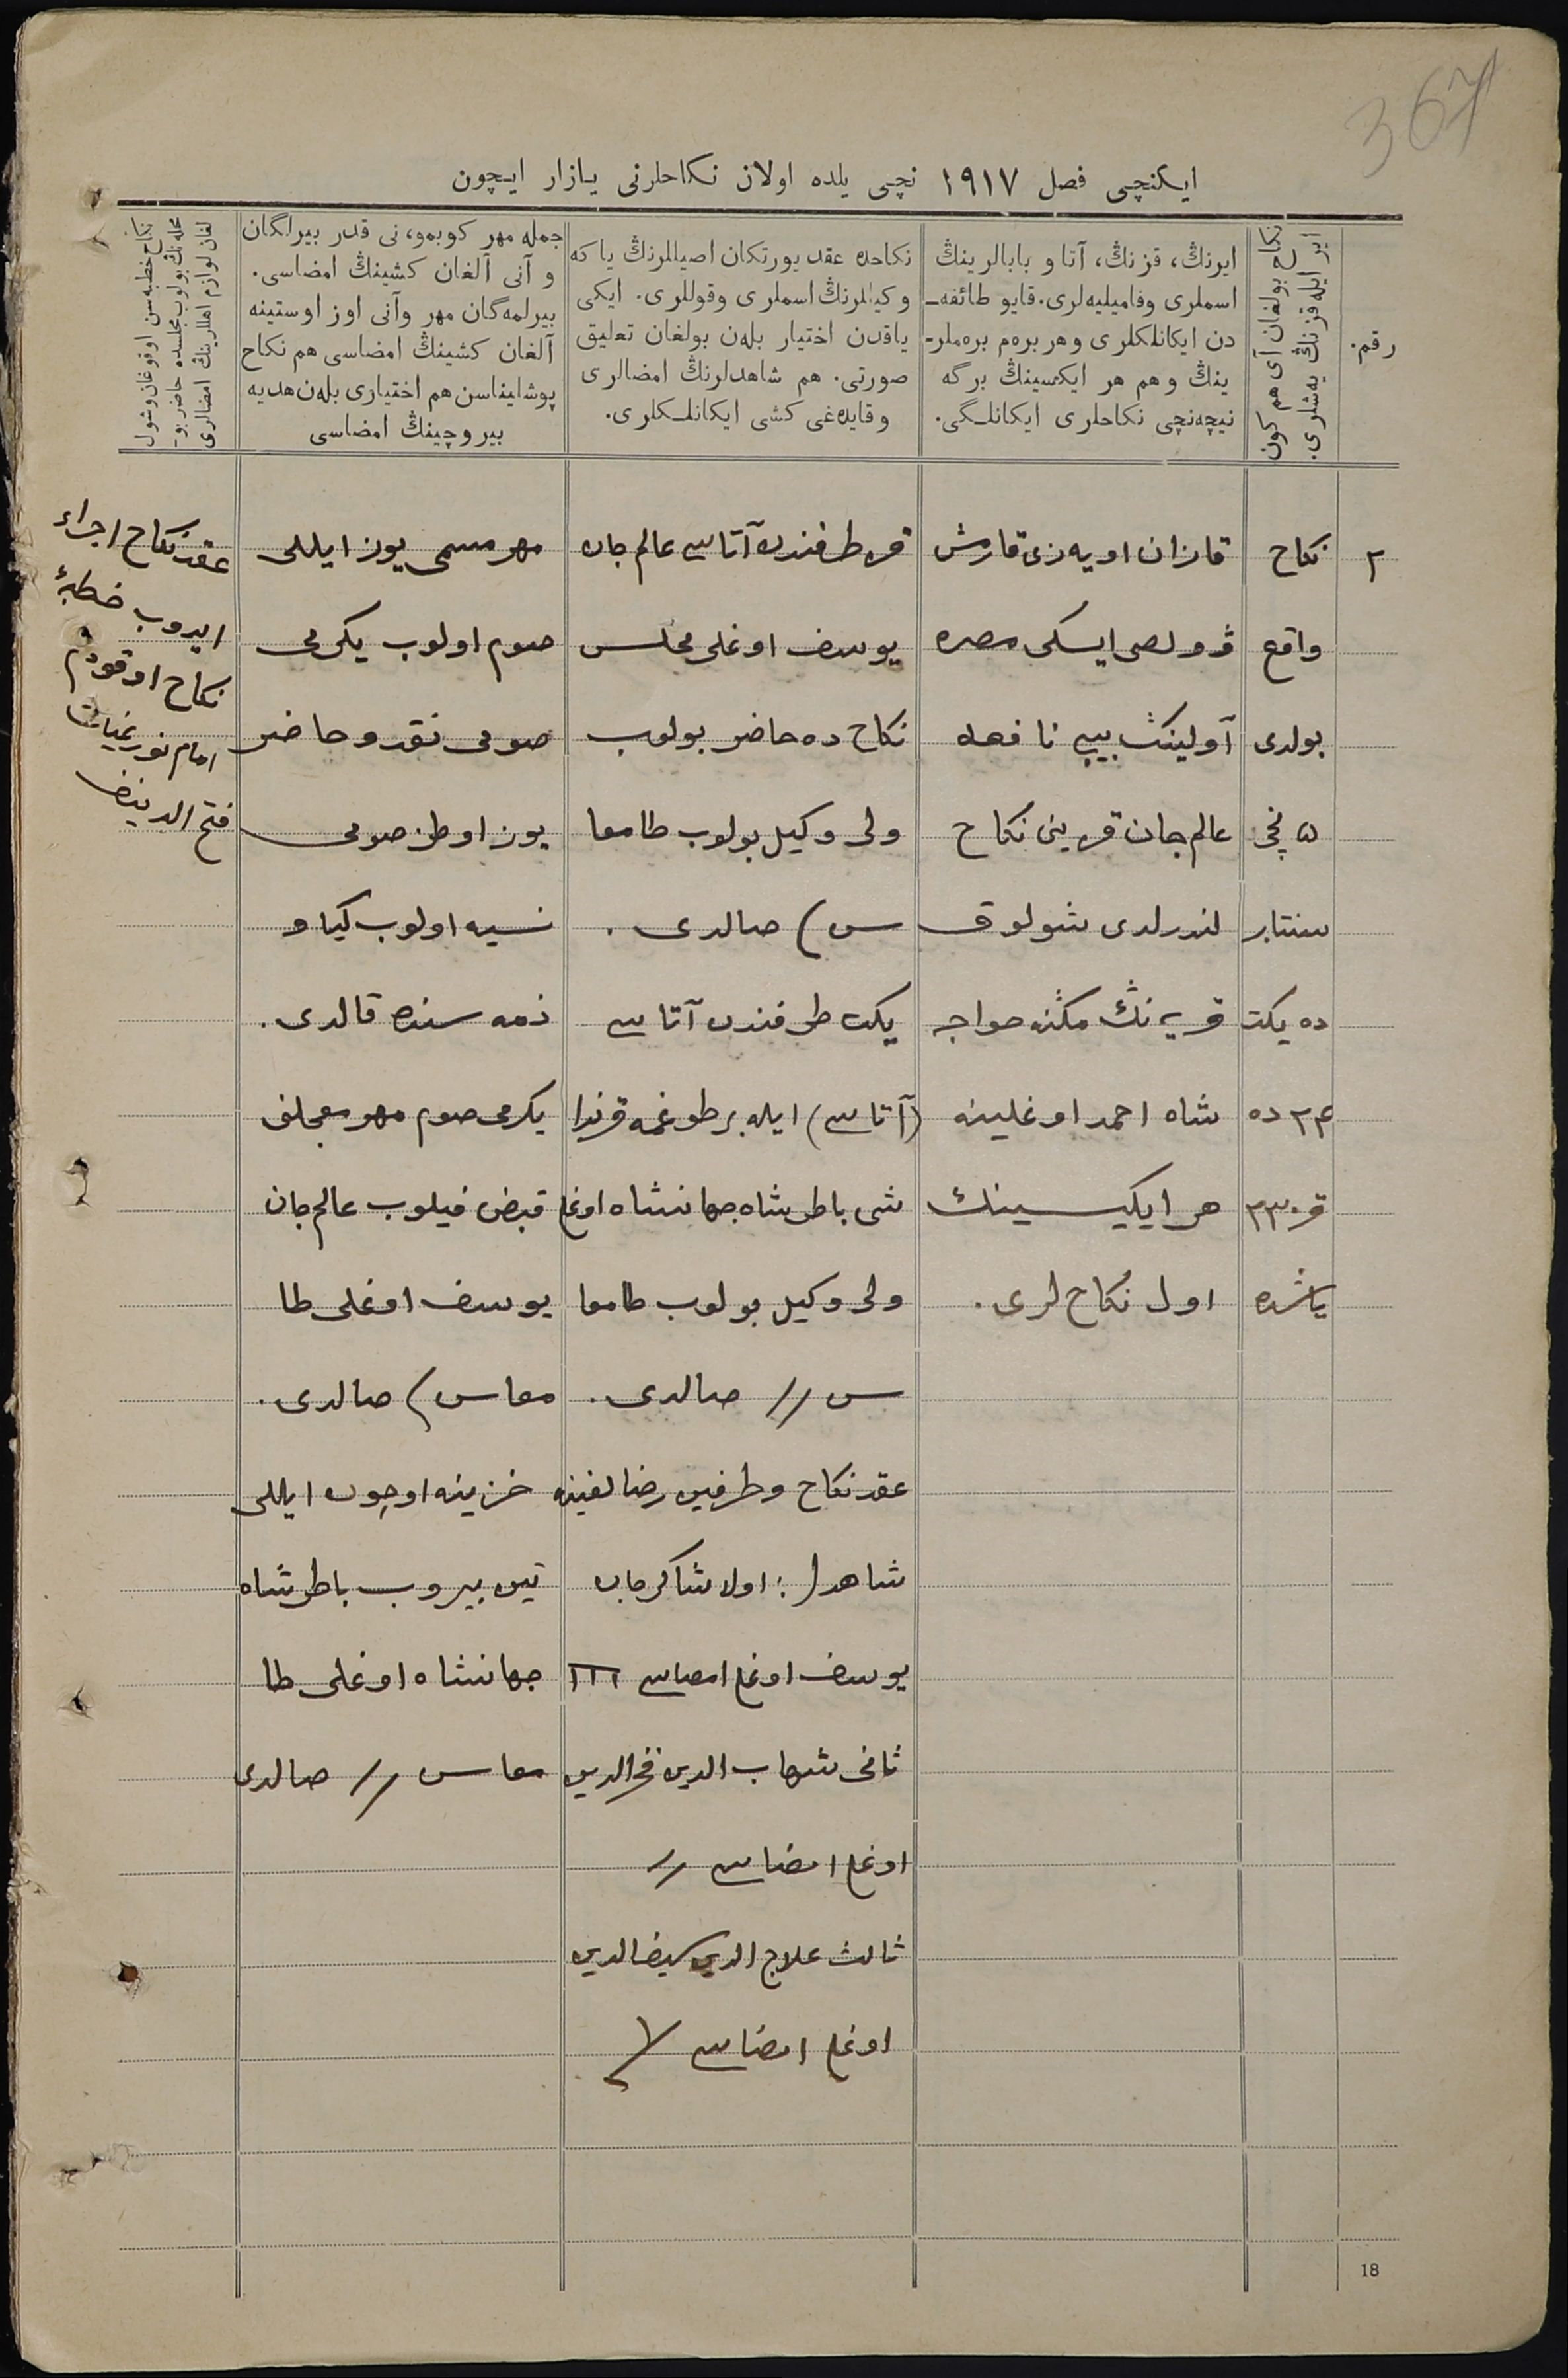 367
ایکنچی فصل ١٩١٧ نچی یلده اولان نکاحلرنی یازار ایچون
رقم.
نکاح بولغان آی هم کون
ایر ایله قزنڭ یه‌شلری.
ایرنڭ، قزنڭ، آتا و بابالرینڭ
اسملری وفامیلیه‌لری. قایو طائفه‌ـ
دن ایکانلکلری وهر بره‌م بره‌ملرـ
ینڭ وهم هر ایکسینڭ برگه
نیچه‌نچی نکاحلری ایکانلـگی.
نکاحده عقد یورتکان اصیللرنڭ یا که
وکیللرنڭ اسملری وقوللری. ایکی
یاقدن اختیار بله‌ن بولغان تعلیق
صورتی. هم شاهدلرنڭ امضالری
وقایده‌غی کشی ایکانلـکلری.
جمله مهر کوبمو، نی قدر بیرلگان
و آنی آلغان کشینڭ امضاسی.
بیرلمه‌گان مهر وآنی اوز اوستینه
آلغان کشینڭ امضاسی هم نکاح
پوشلیناسن هم اختیاری بله‌ن هدیه
بیروچینڭ امضاسی
نکاح خطبه‌سن اوقوغان وشول
محله‌نڭ بولوب مجلسده حاضر بوـ
لغان لوازم اهللرینڭ امضالری
٢
نکاح
واقع
بولدی
۵ نچی
سنتابر
ده یکت
٢۴ ده
قز ٢٣
یاشده
قازان اویه‌زی قارمش
ۋولصی ایسکی مصره
آولینڭ بیبی نافعه
عالم‌جان قزینی نکاح
لندرلدی شولوق
قریه‌نڭ
شاه احمد اوغلینه
هر ایکیسینڭ
اول نکاح لری.
قز طرفندن آتاسی عالم‌جان
یوسف اوغلی مجلس
نکاح ده حاضر بولوب
ولی وکیل بولوب طامعا
سی صالدی.
یکت طرفندن آتاسی
(آتاسی) ایله بر طوغمه قرنداـ
شی باطرشاه جهانشاه اوغلی
ولی وکیل بولوب طامعا
سی // صالدی.
عقد نکاح وطرفین رضالغینه
شاهدلر: اول شاکرجان
یوسف اوغلی امضاسی
ثانی شهاب الدین فخرالدین
اوغلی امضاسی //
ثالث علاج الدین سیف الدین
اوغلی امضاسی
مهر مسمی یوز ایللی
صوم اولوب یکرمی
صومی نقد و حاضر
یوز اوطز صومی
نسیه اولوب کیاو
ذمه سنده قالدی.
یکرمی صوم مهر معجلنی
قبض قیلوب عالم‌جان
یوسف اوغلی طا
معاسی صالدی.
خزینه اوچون ایللی
تین بیروب باطرشاه
جهانشاه اوغلی طا
معاسی // صالدی
عقد نکاح اجراء
ایدوب خطبهٔ
نکاح اوقودم
امام نورغیاث
فتح الدینف
18